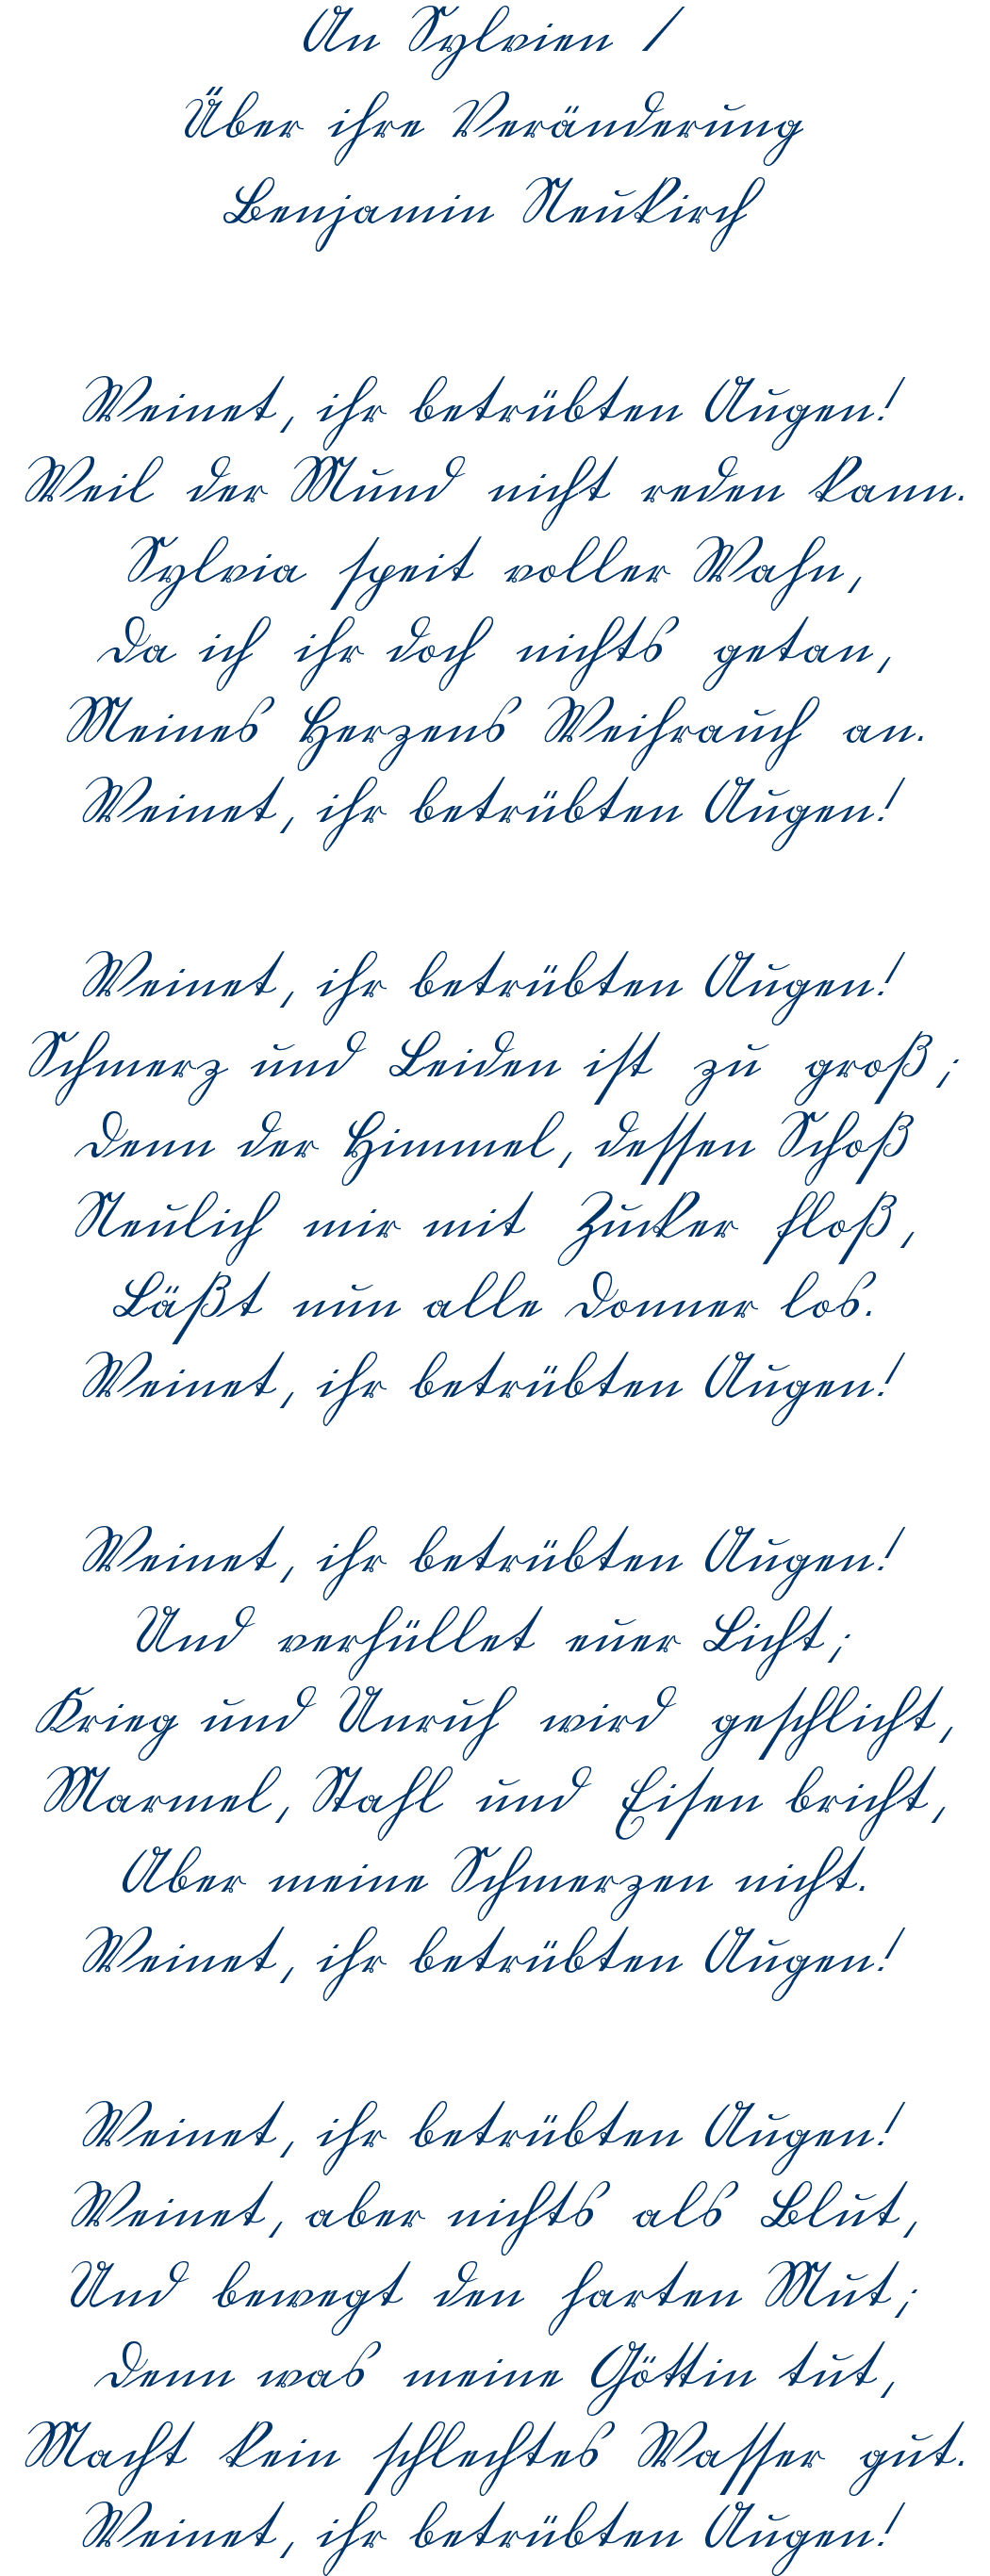 An Sylvien /
Über ihre Veränderung
Benjamin Neukirch
Weinet, ihr betrübten Augen!
Weil der Mund nicht reden kann.
Sylvia speit voller Wahn,
Da ich ihr doch nichts getan,
Meines Herzens Weihrauch an.
Weinet, ihr betrübten Augen!
Weinet, ihr betrübten Augen!
Schmerz und Leiden ist zu groß;
Denn der Himmel, dessen Schoß
Neulich mir mit Zucker floß,
Läßt nun alle Donner los.
Weinet, ihr betrübten Augen!
Weinet, ihr betrübten Augen!
Und verhüllet euer Licht;
Krieg und Unruh wird geschlicht,
Marmel, Stahl und Eisen bricht,
Aber meine Schmerzen nicht.
Weinet, ihr betrübten Augen!
Weinet, ihr betrübten Augen!
Weinet, aber nichts als Blut,
Und bewegt den harten Mut;
Denn was meine Göttin tut,
Macht kein schlechtes Wasser gut.
Weinet, ihr betrübten Augen!